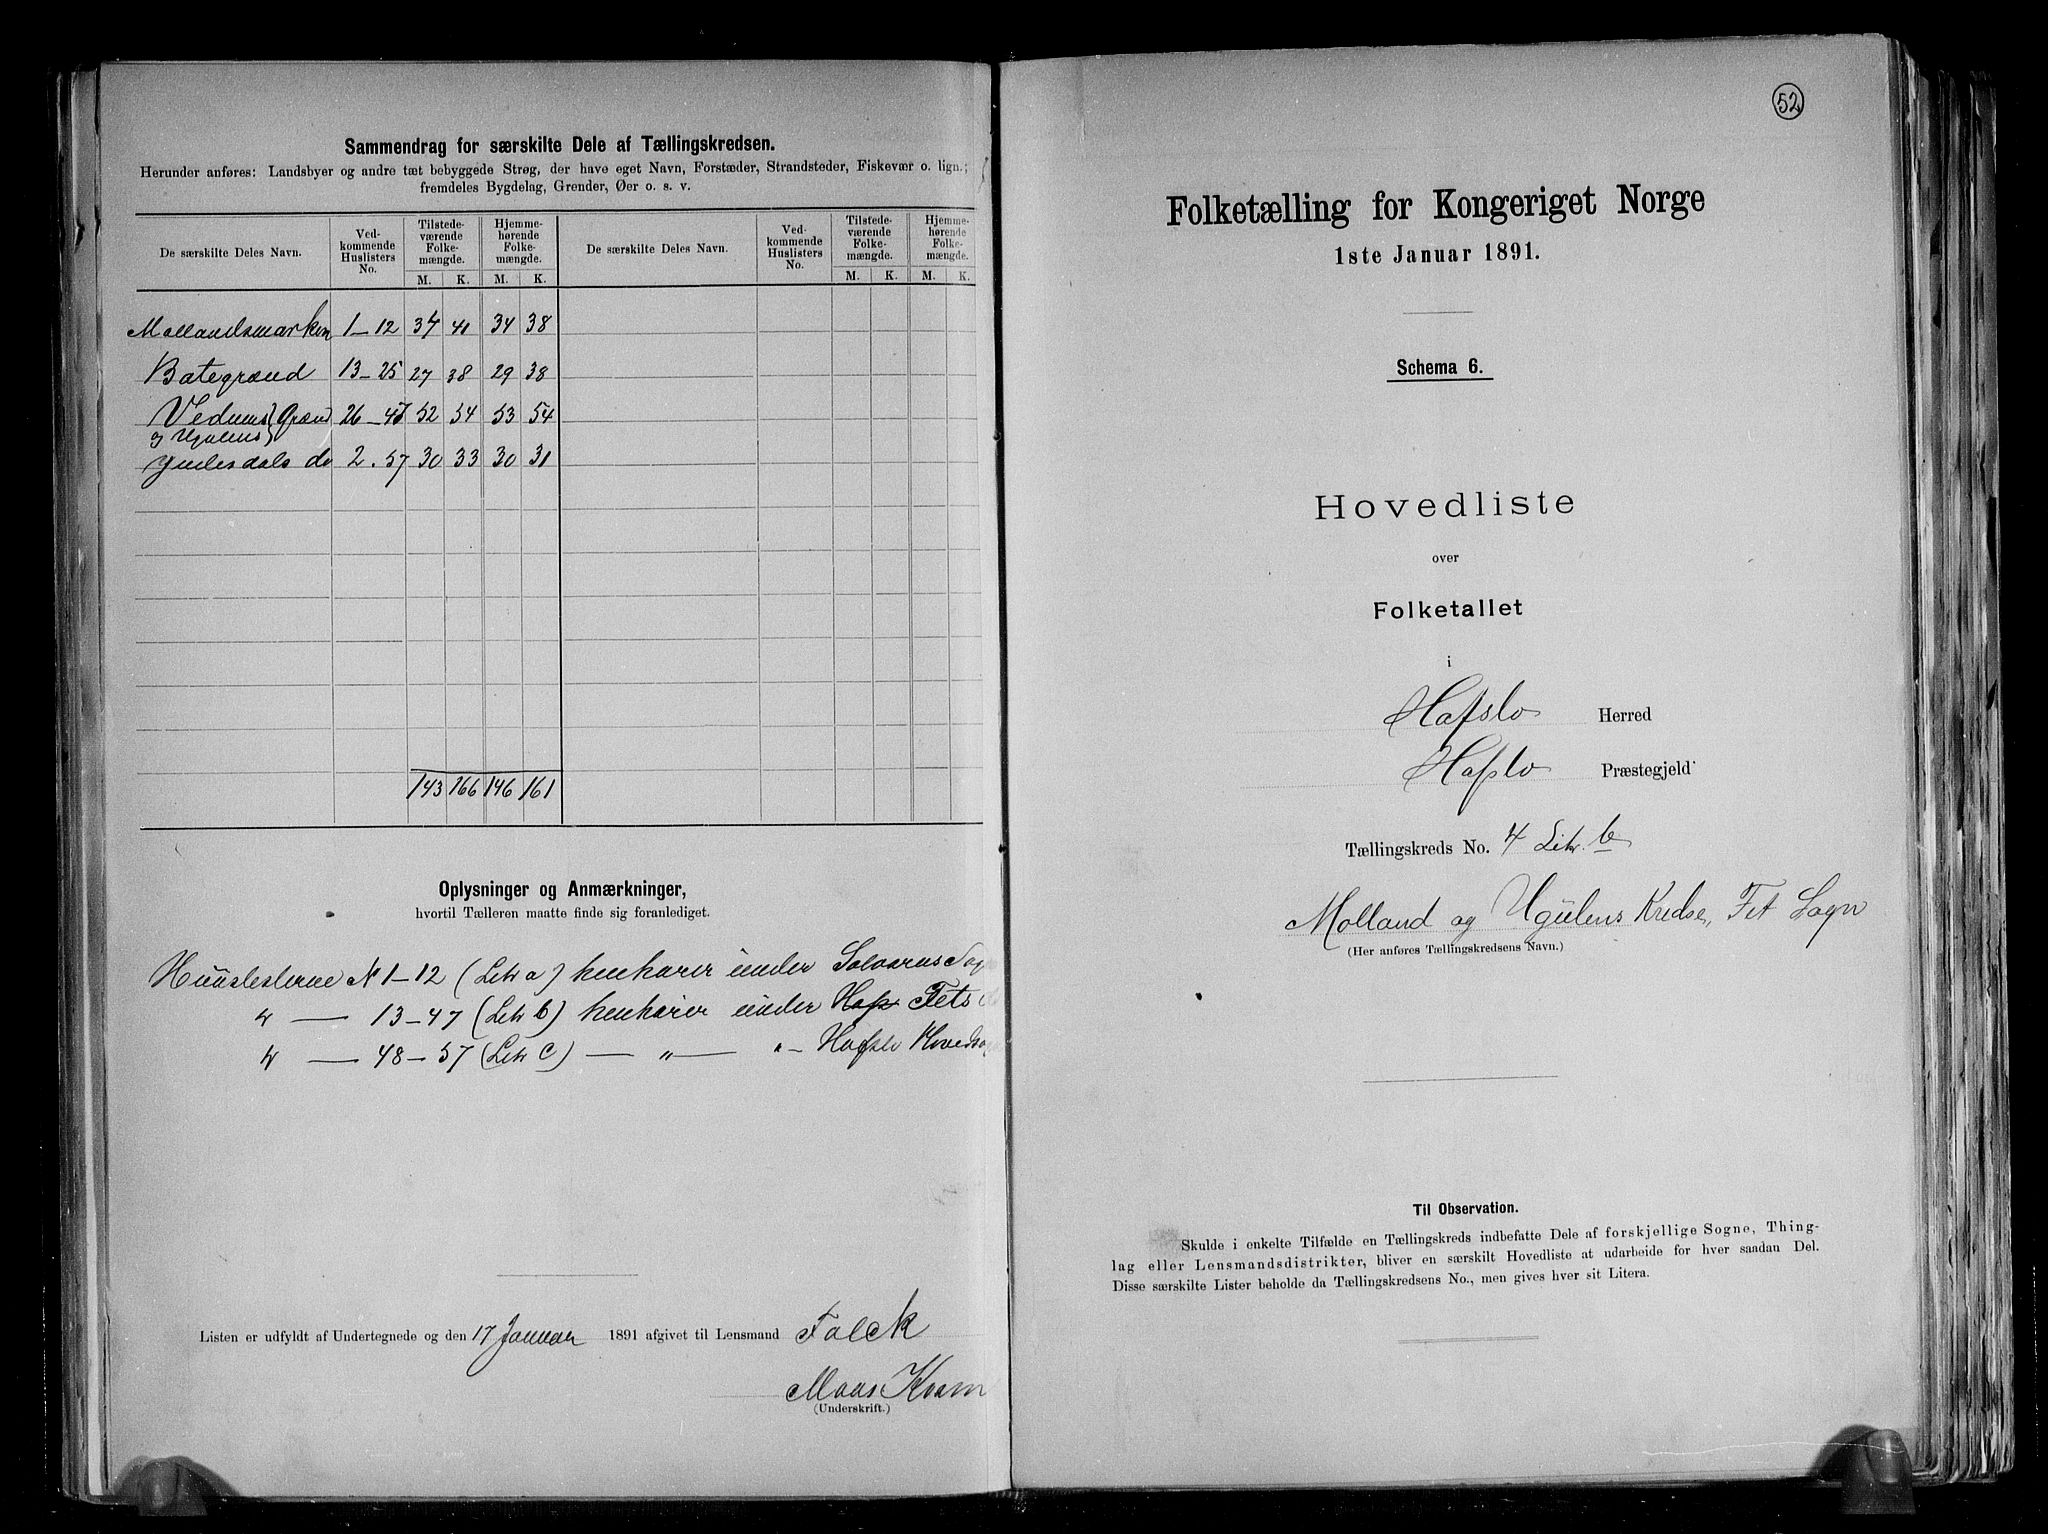 Sammendrag for særskilte Dele af Tællingskredsen.
Herunder anføres: Landsbyer og andre tæt bebyggede Strøg, der have eget Navn, Forstæder, Strandsteder, Fiskevær o. lign.;
fremdeles Bygdelag, Grender, Øer o. s. v.
De særskilte Deles Navn. Ved-kommende Huslisters No. Tilstede-værende Folke-mængde. Hjemme-hørende Folke-mængde. De særskilte Deles Navn. Ved-kommende Huslisters No. Tilstede-værende Folke-mængde. Hjemme-hørende Folke-mængde.
M. K. M. K. M. K. M. K.
Mollandsmarken 1-12 34 41 34 38
Bategrænd 13-25 27 38 29 38
Vedums Grænd 26-47 52 54 53 54
og Ugulens
do 2.57 30 33 30 31
143 166 146 161
Oplysninger og Anmærkninger,
hvortil Tælleren maatte finde sig foranlediget.
N 1-12 (Litr a) henhører under Solvorns
" — 13-47 (Litr b) henhører under Fets
" — 48-57 (Litr C) — " — " - Hafslo
Listen er udfyldt af Undertegnede og den 17 Januar 1891 afgivet til Lensmand Falck
Maas Kvam
(Underskrift.)
52
Folketælling for Kongeriget Norge
1ste Januar 1891.
Schema 6.
Hovedliste
over
Folketallet
i
Hafslo Herred
Hafslo Præstegjeld
Tællingskreds No. 4 Litr. b
Molland og Ugulens Kredse, Fet Sogn
(Her anføres Tællingskredsens Navn.)
Til Observation.
Skulde i enkelte Tilfælde en Tællingskreds indbefatte Dele af forskjellige Sogne, Thing-
lag eller Lensmandsdistrikter, bliver en særskilt Hovedliste at udarbeide for hver saadan Del.
Disse særskilte Lister beholde da Tællingskredsens No., men gives hver sit Litera.